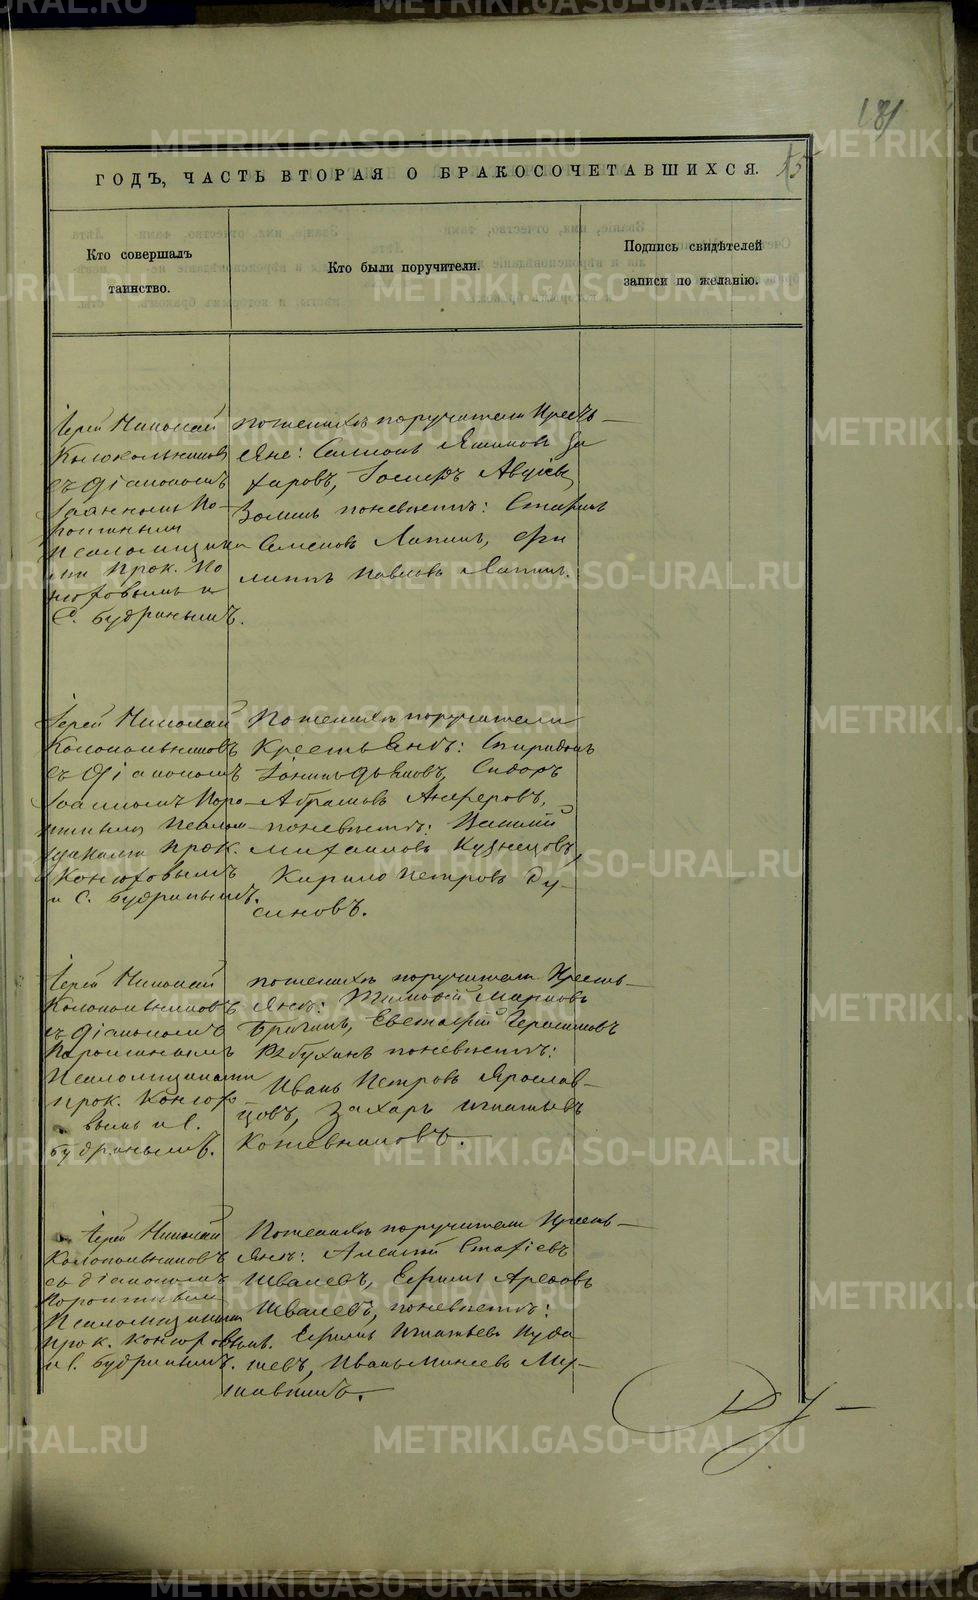 181
ГОДЪ, ЧАСТЬ ВТОРАЯ О БРАКОСОЧЕТАВШИХСЯ.
15
Кто совершалъ
таинство.
Кто были поручители.
Подпись свидѣтелей
записи по желанію.
Іерей Николай
Колокольниковъ
съ Діакономъ
Іоанномъ По-
ротинымъ
Псаломщика
ми Прок. Ко
нюховымъ и
С. Будринымъ.
по женихѣ поручители Кресть-
яне: Самсонъ Якимовъ За
харовъ, Іосифъ
Зоминъ по невѣстѣ:
Семеновъ Лапинъ, Фи
липпъ Павловъ Лапинъ.
Іерей Николай
Колокольниковъ
съ Діакономъ
Іоанномъ Поро-
тинымъ Псалом-
щиками Прок.
Конюховымъ
и С. Будринымъ.
По женихѣ поручители
Крестьянѣ: Спиридонъ
Сидоръ
Абрамовъ Анферовъ,
по невѣстѣ: Василій
Михаиловъ Кузнецовъ,
Кирило Петровъ Ду-
синовъ.
Іерей Николай
Колокольниковъ
съ Діакономъ
Поротинымъ
Псаломщиками
Прок. Конюхо-
вымъ и С.
Будринымъ.
по женихѣ поручители Кресть-
янѣ: Тимофей Марковъ
Евстафій Герасимовъ
по невѣстѣ:
Иванъ Петровъ Ярослав-
цовъ, Захаръ Игнатьевъ
Кожевниковъ.
Іерей Николай
Колокольниковъ
съ Діакономъ
Поротинымъ
Псаломщиками
Прок. Конюховымъ.
и С. Будринымъ.
По женихѣ поручители Кресть-
янѣ: Алексѣй
Швалевъ, Ефимъ
Швалевъ, по невѣстѣ:
Ефимъ Игнатьевъ Куда
шевъ, Иванъ Минеевъ
METRIKI.GASO-URAL.RU